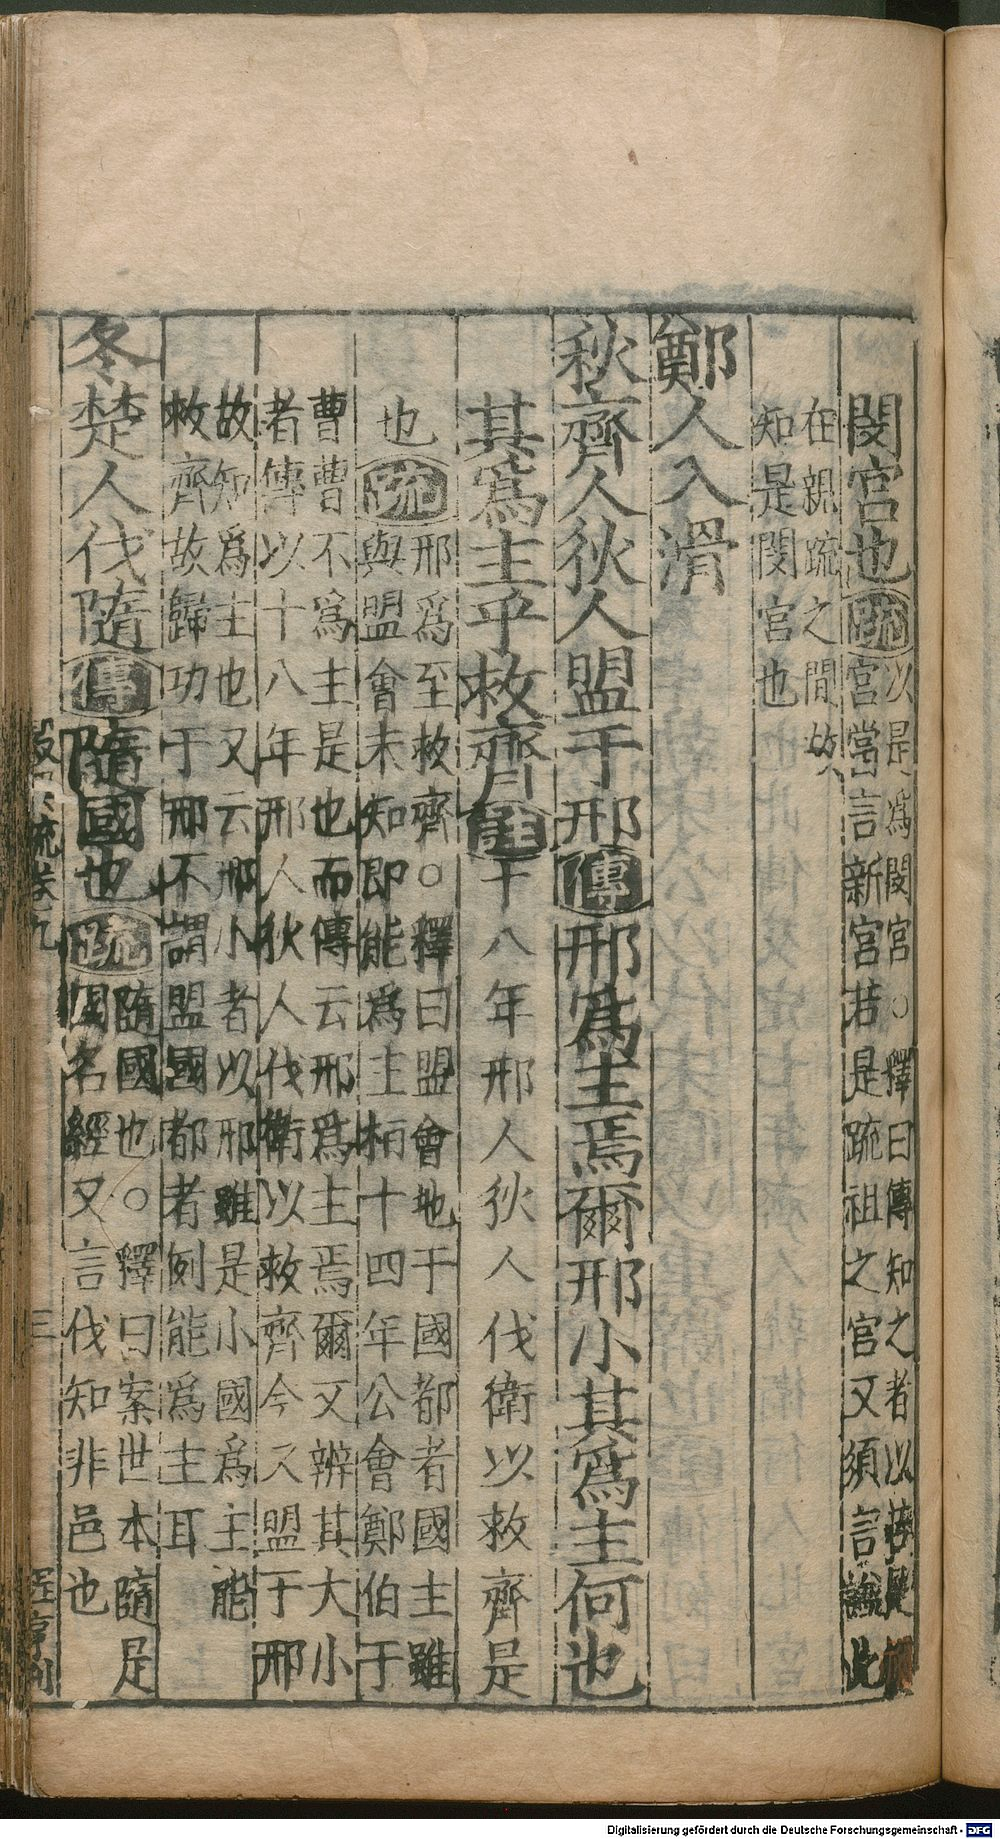 閔宮也疏以是為閔宮○釋曰傳知之者以
宮當言新宮若是疏祖之宮又須言謚此
在親疏之間故
知是閔宮也
鄭人入滑
秋齊人狄人盟于邢傳邢為主焉爾邢小其為主何也
其為主乎救齊註十八年邢人狄人伐衛以救齊是
也疏邢為至救齊○釋曰盟會地于國都者國主雖
與盟會未知即能為主桓十四年公會鄭伯于
曹曹不為主是也而傳云邢為主焉爾又辨其大小
者傳以十八年邢人狄人伐衛以救齊今又盟于邢
故知為主也又云邢小者以邢雖是小國為主能
救齊故歸功于邢不謂盟國都者例能為主耳
冬楚人伐隨傳隨國也疏隨國也○釋曰案世本隨是
國名經又言伐知非邑也
疏卷九
三
Digitalisierung gefördert durch die Deutsche Forschungsgemeinschaft - DFG